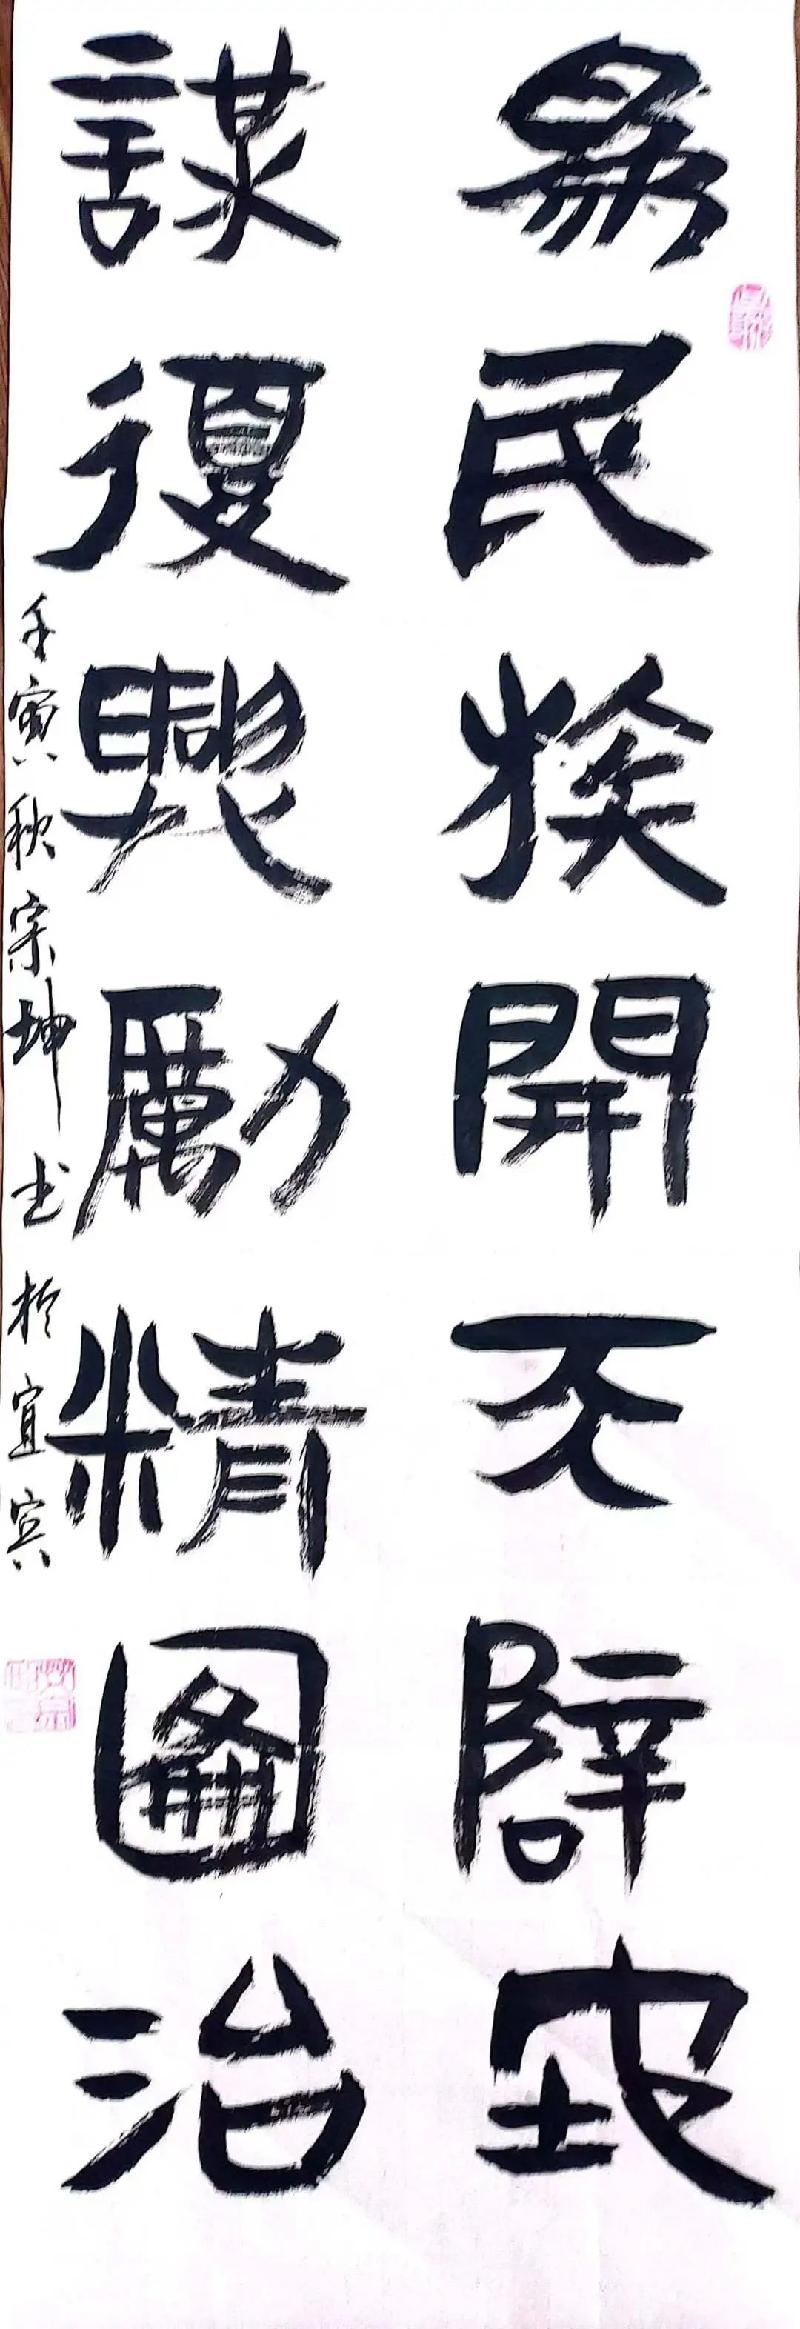 為民族開天辟地
謀復興勵精圖治
壬寅秋宗坤书於宜宾